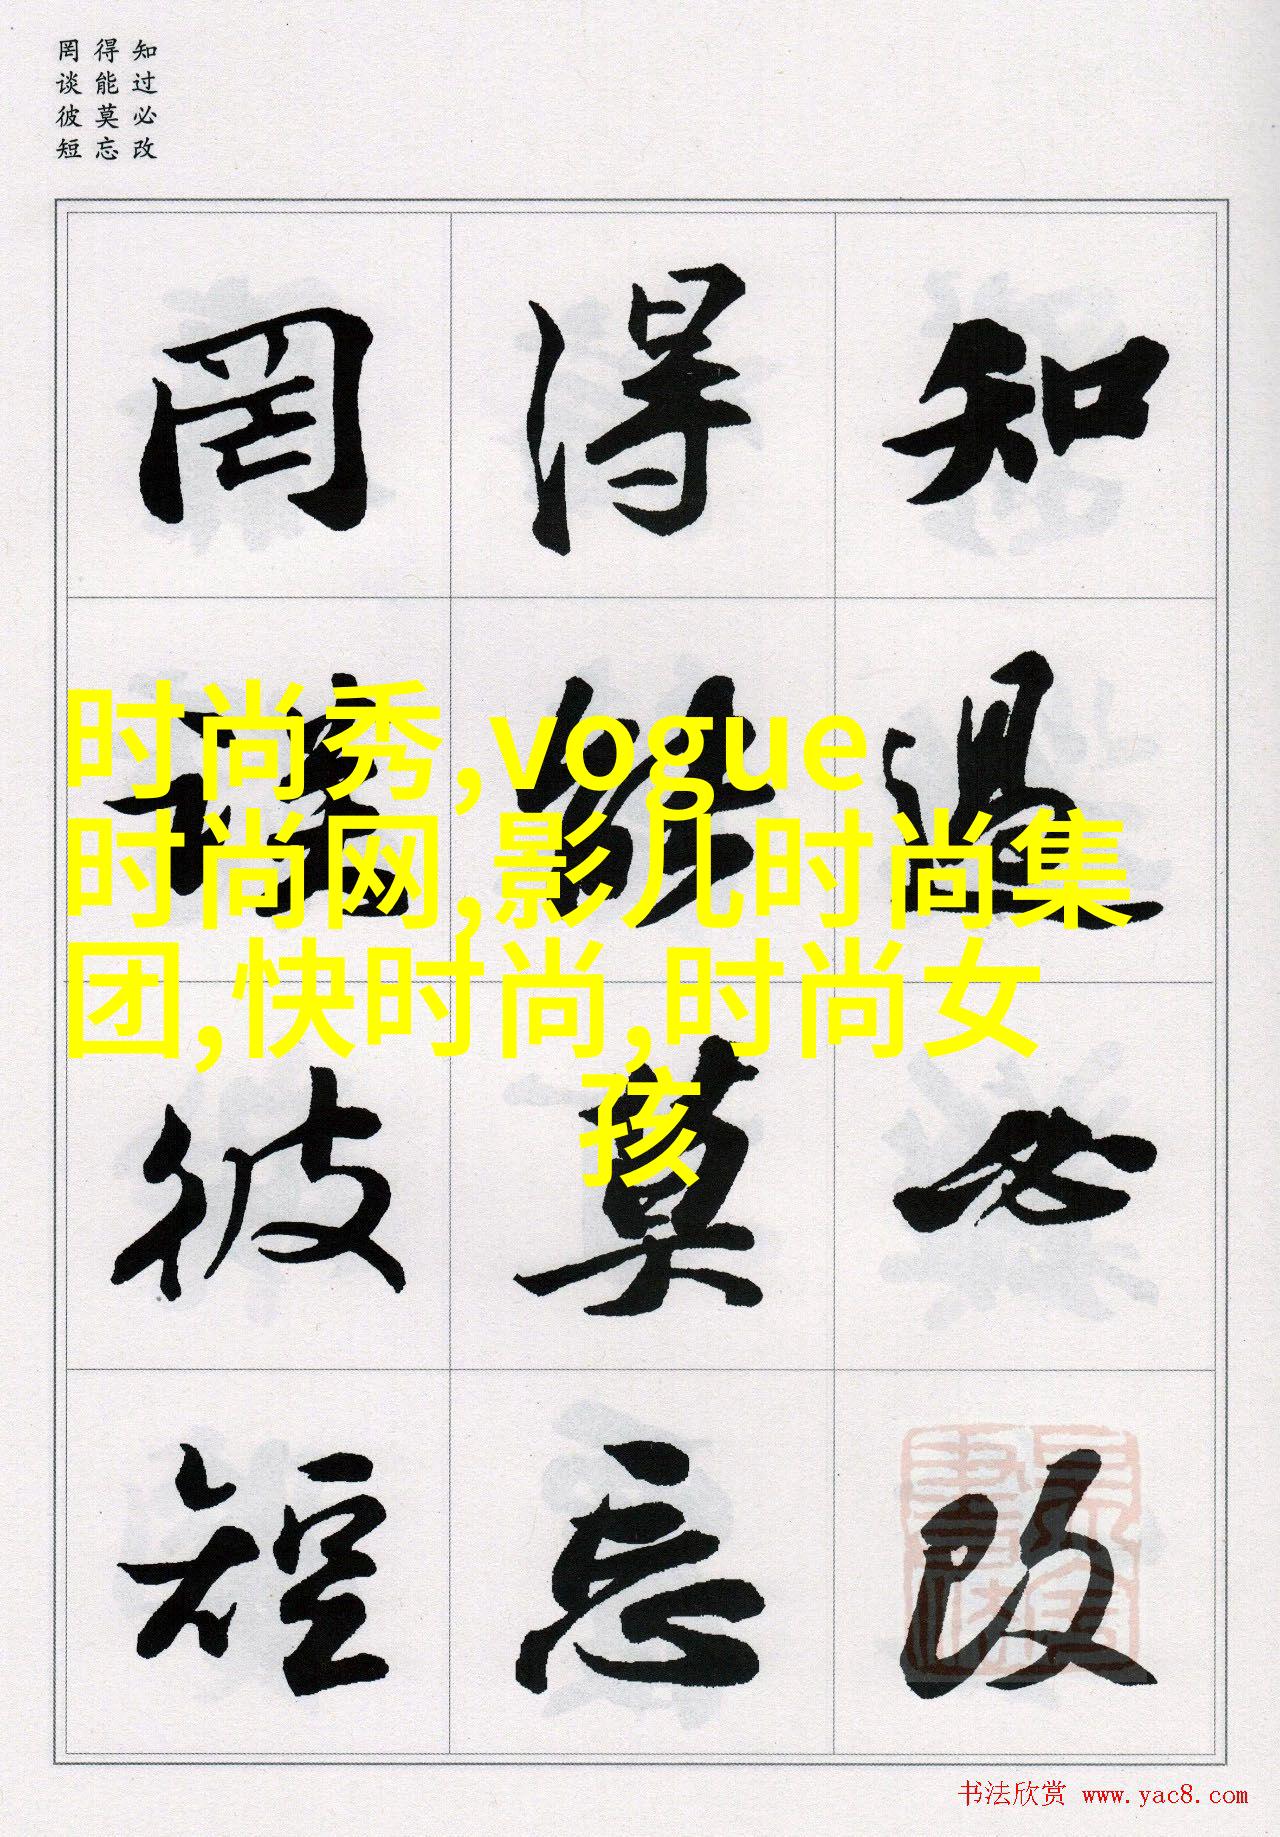 知过必改
得能莫忘
罔谈彼短
知過必改
得能莫忘
罔談彼短
时尚秀,vogue
时尚网,影儿时尚集
团,快时尚,时尚女
孩
书法欣赏 www.yac8.com